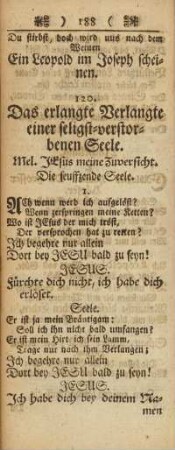 ) 188 (
Du stirbst, doch wird uns nach dem
Weinen
Ein Leopold im Joseph schei-
nen.
120.
Das erlangte Verlangte
einer seligst-verstor-
benen Seele.
Mel. JEsus meine Zuversicht.
Die seufftzende Seele.
1.
ACh wenn werd ich aufgelöst?
Wenn zerspringen meine Ketten?
Wo ist JEsus der mich tröst,
Der versprochen hat zu retten?
Jch begehre nur allein
Dort bey JESU bald zu seyn!
JESUS.
Fürchte dich nicht, ich habe dich
erlöset.
Seele.
Er ist ja mein Bräutigam:
Soll ich ihn nicht bald umfangen?
Er ist mein Hirt, ich sein Lamm,
Trage nur nach ihm Verlangen;
Jch begehre nur allein
Dort bey JESU bald zu seyn!
JESUS.
Jch habe dich bey deinem Na-
men